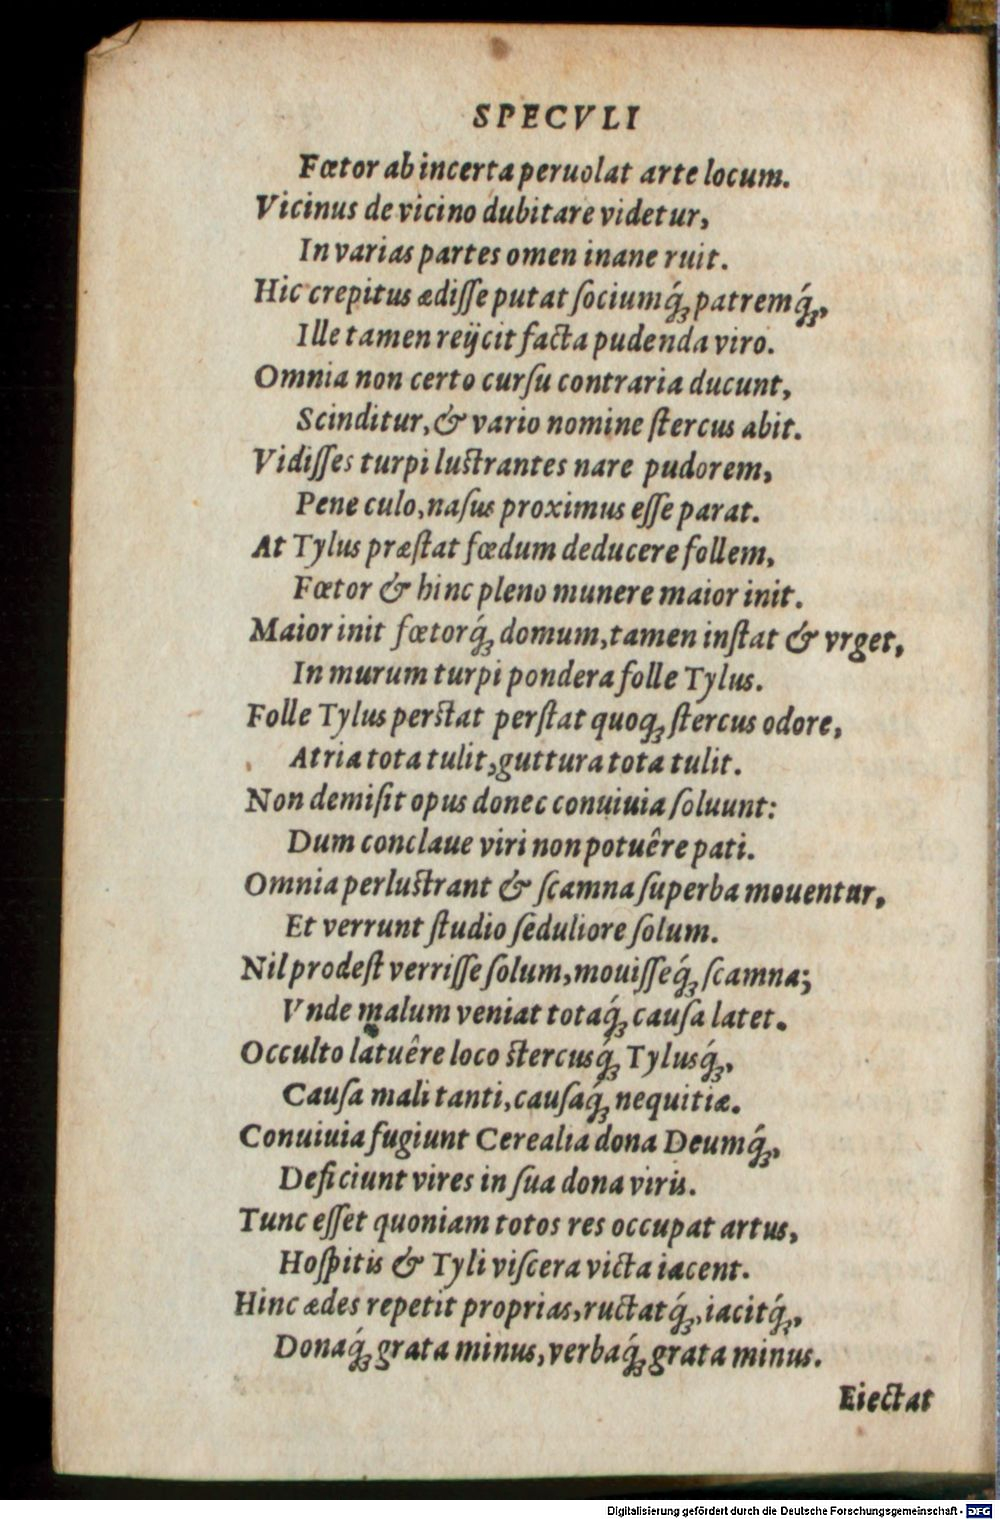 SPECVLI
Fœtor ab incerta peruolat arte locum.
Vicinus de vicino dubitare videtur,
In varias partes omen inane ruit.
Hic crepitus ædiſſe putat ſociumq́ꝫ patremq́ꝫ,
Ille tamen reijcit facta pudenda viro.
Omnia non certo curſu contraria ducunt,
Scinditur, & vario nomine ſtercus abit.
Vidiſſes turpi luſtrantes nare pudorem,
Pene culo, naſus proximus eſſe parat.
At Tylus præſtat fœdum deducere follem,
Fœtor & hinc pleno munere maior init.
Maior init fœtorq́ꝫ domum, tamen inſtat & vrget,
In murum turpi pondera folle Tylus.
Folle Tylus perſtat perſtat quoqꝫ ſtercus odore,
Atria tota tulit, guttura tota tulit.
Non demiſit opus donec conuiuia ſoluunt:
Dum conclaue viri non potuêre pati.
Omnia perluſtrant & ſcamna ſuperba mouentur,
Et verrunt ſtudio ſeduliore ſolum.
Nil prodeſt verriſſe ſolum, mouiſſeq́ꝫ ſcamna;
Vnde malum veniat totaq́ꝫ cauſa latet.
Occulto latuêre loco ſtercusq́ꝫ Tylusq́ꝫ,
Cauſa mali tanti, cauſaq́ꝫ nequitiæ.
Conuiuia fugiunt Cerealia dona Deumq́ꝫ,
Deficiunt vires in ſua dona viris.
Tunc eſſet quoniam totos res occupat artus,
Hoſpitis & Tyli viſcera victa iacent.
Hinc ædes repetit proprias, ructatq́ꝫ, iacitq́ꝫ,
Donaq́ꝫ grata minus, verbaq́ꝫ grata minus.
Eiectat
Digitalisierung gefördert durch die Deutsche Forschungsgemeinschaft - DFG